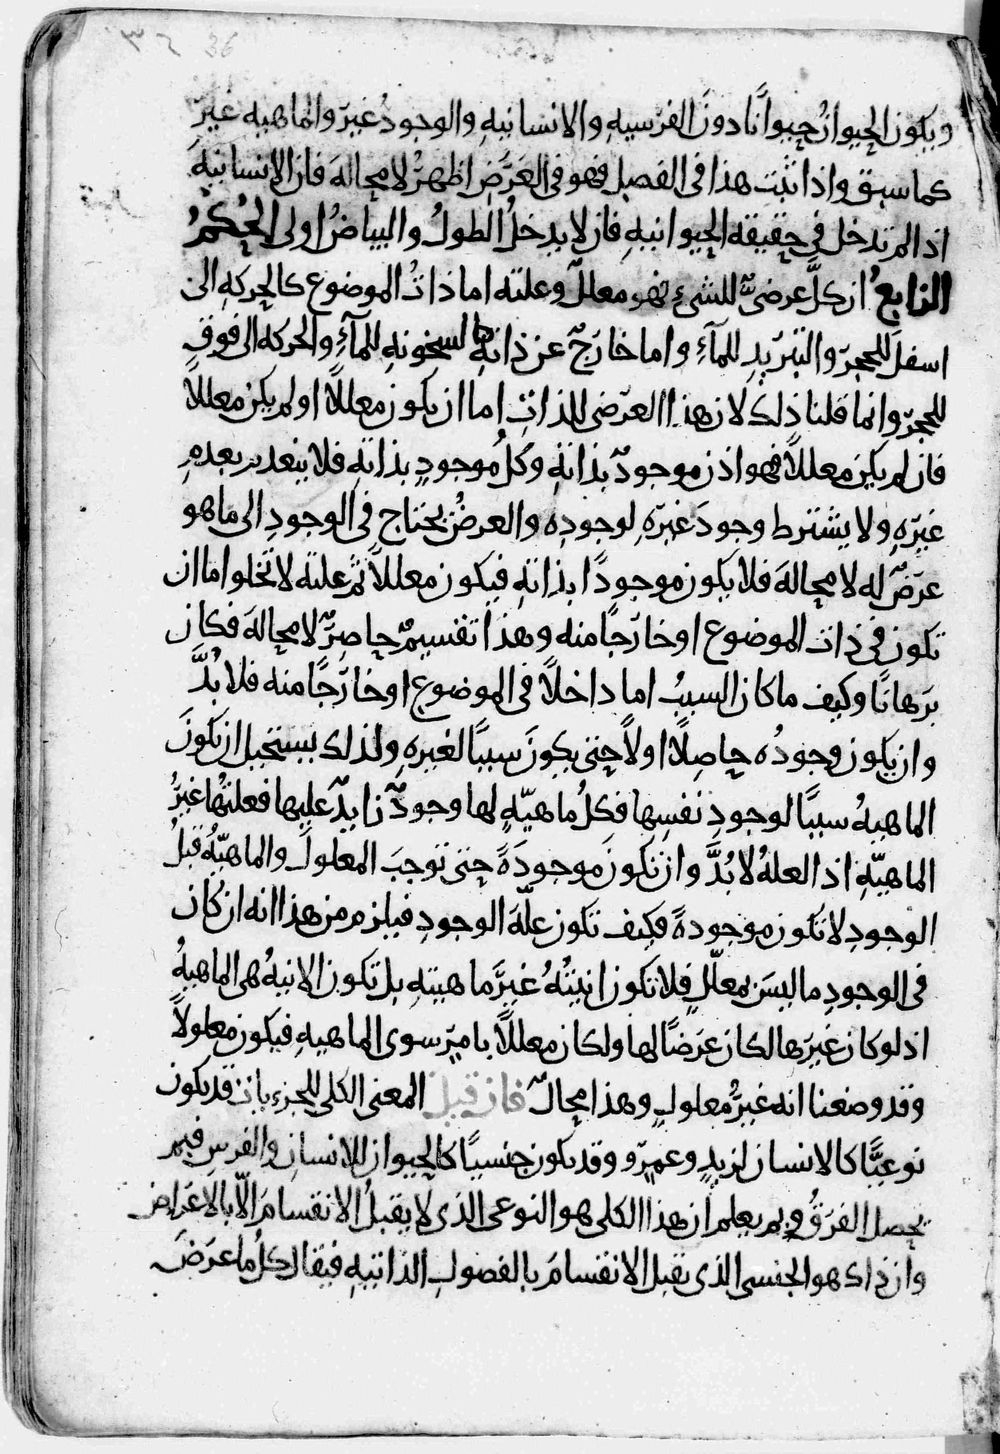 ٣٦ 36
ويكون الحيوانُ حيوانًا دونَ الفرسيهِ والانسانيهِ والوجودُ غيرٌ والماهيه غيرٌ
كما سبق واذا ثبت هذا فى الفصل فهو فى العَرَضِ اظهرُ لا محالهَ فان الانسانيهَ
اذا لم تدخل فى حقيقه الحيوانيهِ فان لا يدخلُ الطولُ والبياضُ اولى الحُكمُ
الرابعُ ان كلَّ عرضىٍّ للشىءِ فهو معللٌ وعلته اما ذاتُ الموضوع كالحركهِ الى
اسفلَ للحجرِ والتبريدِ للمآءِ واما خارجٌ عن ذاتهِ كالسخونهِ للمآءِ والحركه الى فوقِ
للحجرِ وانما قلنا ذلك لان هذا العرضى للذاتِ اما ان يكون معللًا او لم يكن معللًا
فان لم يكن معللًا فهو اذن موجودٌ بذاتهِ وكلُ موجودٍ بذاتهِ فلا ينعدم بعدمِ
غيرِهِ ولا يشترط وجودَ غيرِهِ لوجودِه والعرضُ يحتاج فى الوجودِ الى ما هو
عرَضٌ له لا محالهَ فلا يكون موجودًا بذاتهِ فيكون معللًا ثم علته لا تخلوا اما ان
تكون فى ذات الموضوع او خارجًا منه وهذا تقسيمٌ حاصرٌ لا محالهَ فكان
برهانًا وكيف ما كان السببُ اما داخلًا فى الموضوع او خارجًا منه فلا بُدَّ
وان يكون وجودُه حاصِلًا اولًا حتى يكونَ سببًا لغيرهِ ولذلك يستحيل ان تكونَ
الماهيهُ سببًا لوجودِ نفسِها فكلُ ماهيّهٍ لها وجودٌ زايدٌ عليها فعلتُها غيرُ
الماهيّهِ اذ العلهُ لا بُدَّ وان تكونَ موجودَهً حتى توجبَ المعلولَ والماهيّهُ قبلُ
الوجودِ لا تكون موجودهً فكيف تكون علّهَ الوجودِ فيلزم من هذا انه ان كان
فى الوجودِ ما ليسَ بمعللٍ فلا تكون انيتُهُ غيرَ ماهيتهِ بل تكون الانيهُ هى الماهيهُ
اذ لو كان غيرَها لكان عرَضًا لها ولكان معللًا بامرٍ سوى الماهيهِ فيكون معلولًا
وقد وضعنا انه غيرُ معلولٍ وهذا محالٌ فان قيل المعنى الكلى للجزءِيات قد يكون
نوعيًّا كالانسان لزيدٍ وعمرٍو وقد يكون جنسيًا كالحيوان للانسانِ والفرسِ فبم
يحصل الفرَقُ وبم يعلم ان هذا الكلى هو النوعى الذى لا يقبلُ الانقسامَ الّا بالاعراض
وان ذاك هو الجنسى الذى يقبل الانقسامَ بالفصولِ الذاتيهِ فيقال كلُ ما عرَضَ